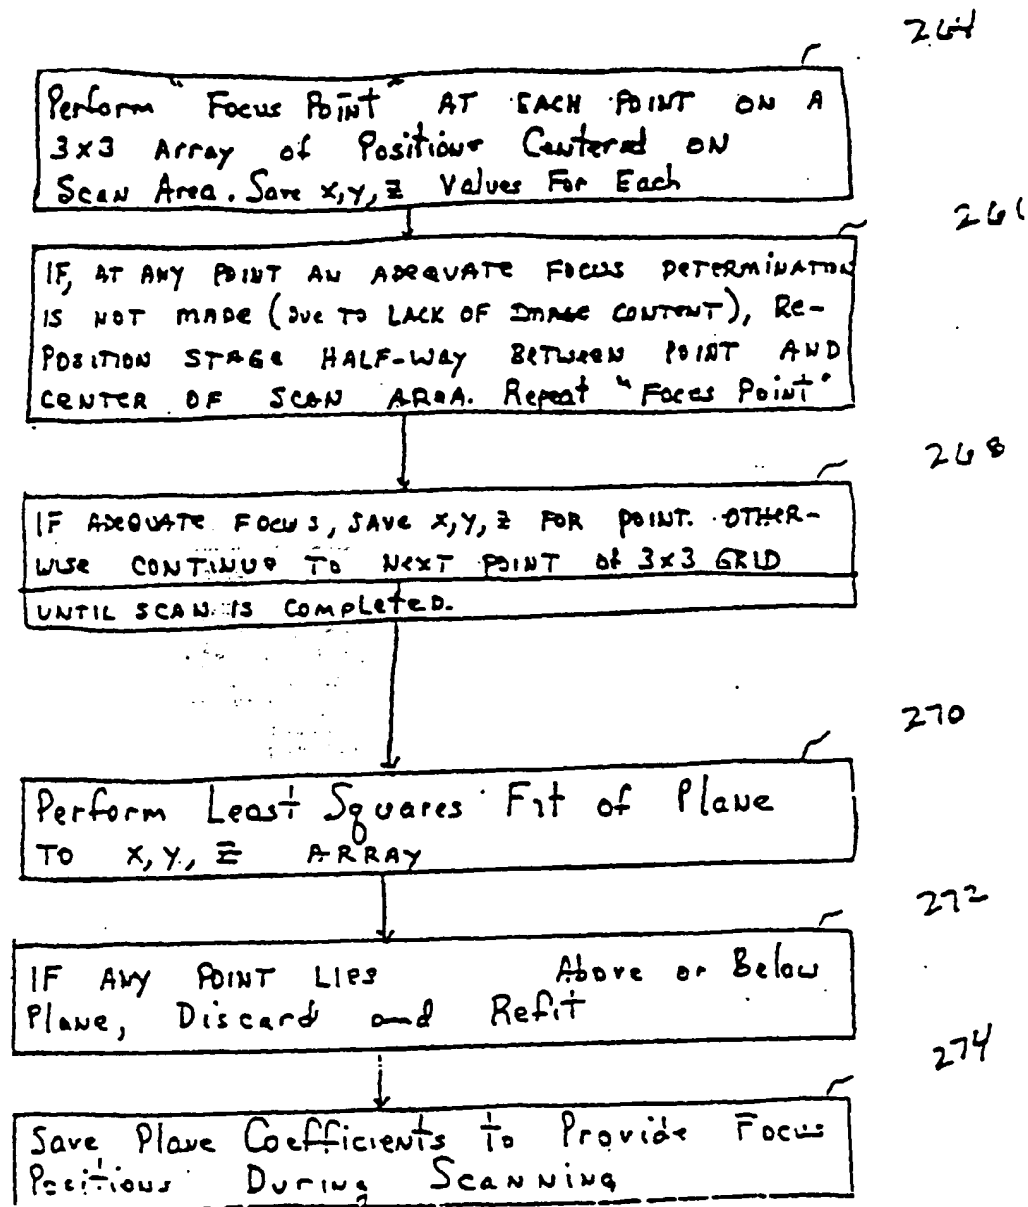 264
Perform "Focus Point" AT EACH POINT ON A
3x3 Array of Positions Centered ON
Scan Area. Save x,y,z Values For Each
IF, AT ANY POINT AN ADEQUATE FOCUS DETERMINATION
IS NOT MADE (DUE TO LACK OF IMAGE CONTENT), RE-
POSITION STAGE HALF-WAY BETWEEN POINT AND
CENTER OF SCAN AREA. Repeat "Focus Point"
268
IF ADEQUATE FOCUS, SAVE x,y,z FOR POINT. OTHER-
WISE CONTINUE TO NEXT POINT of 3x3 GRID
UNTIL SCAN IS COMPLETED.
270
Perform Least Squares Fit of Plane
TO x,y,z ARRAY
272
IF ANY POINT LIES Above or Below
Plane, Discard and Refit
274
Save Plane Coefficients to Provide Focus
Positions During Scanning